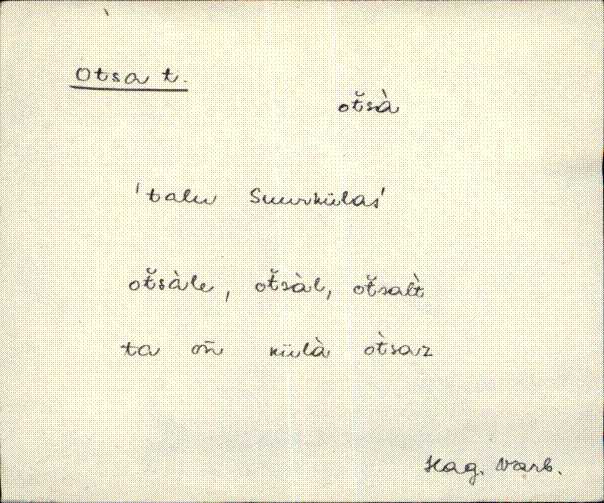 Otsa t.
ot̆sà
'talu Suurkülas'
ot̆sàle, ot̆sàl, ot̆salt̀
ta on̄ külà ot̀saz
Hag. Varb.